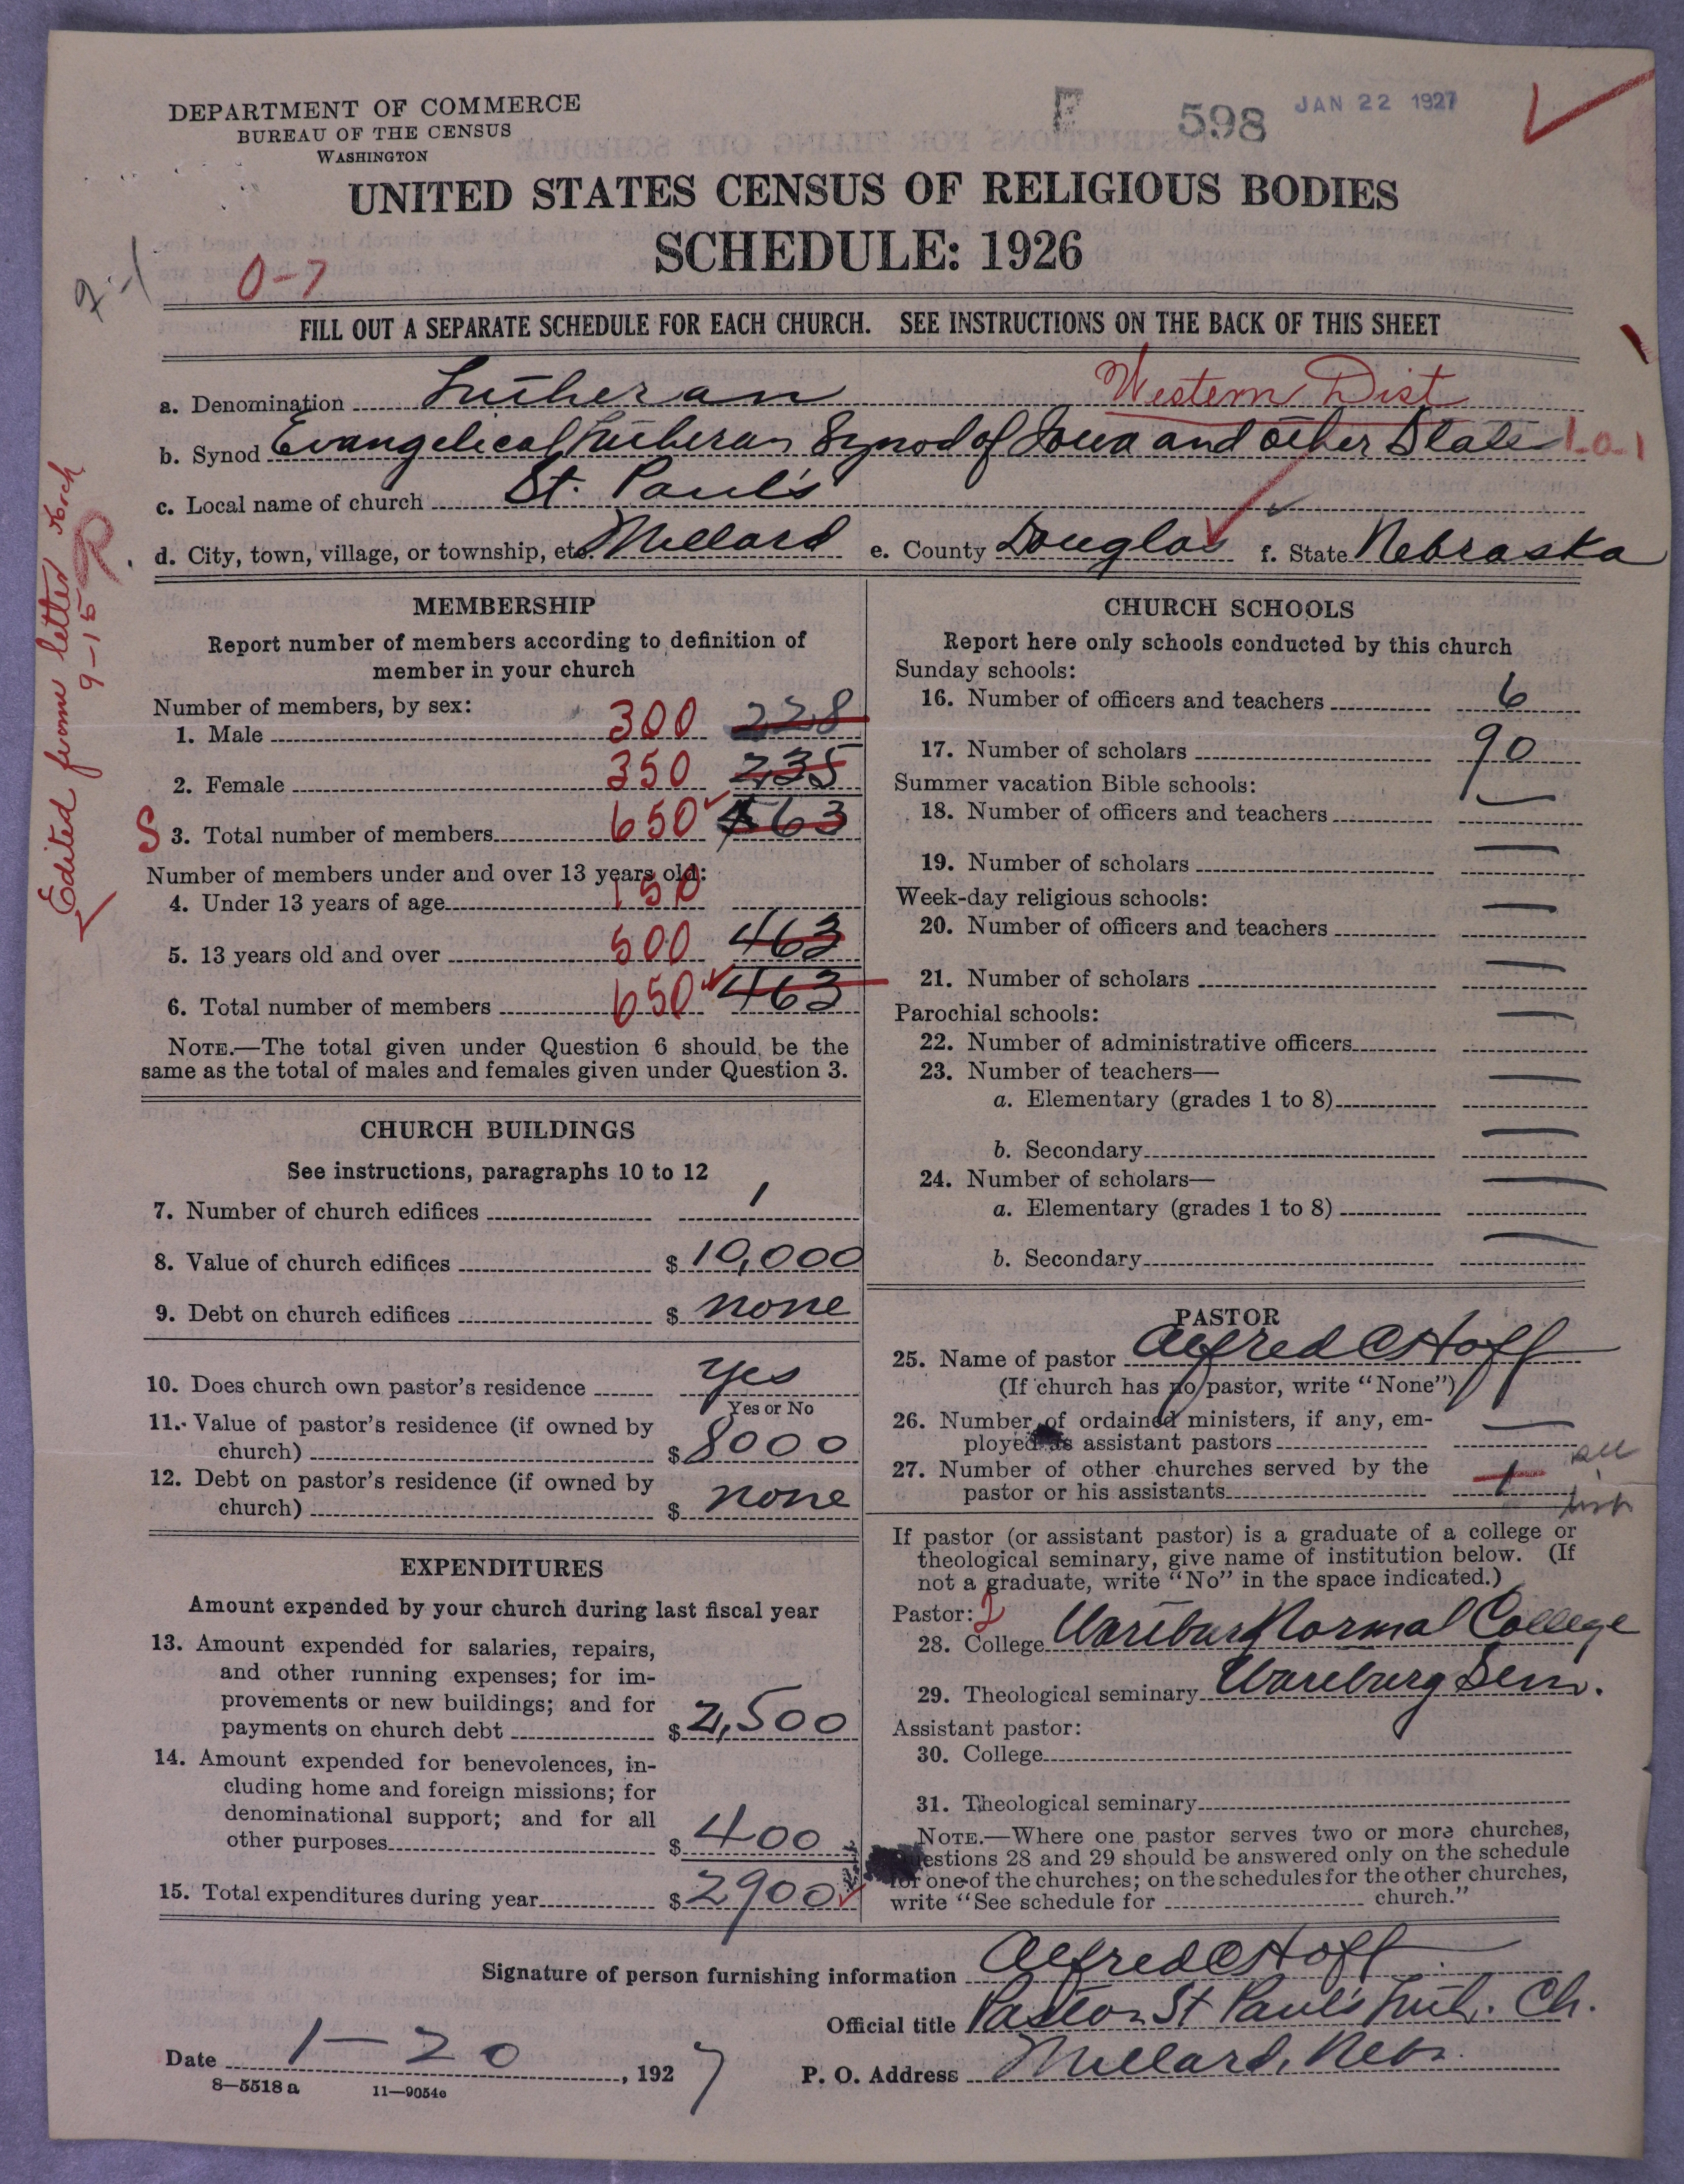 DEPARTMENT OF COMMERCE
BUREAU OF THE CENSUS
WASHINGTON
F 598 JAN 22 1927
UNITED STATES CENSUS OF RELIGIOUS BODIES
SCHEDULE: 1926
0-7
FILL OUT A SEPARATE SCHEDULE FOR EACH CHURCH. SEE INSTRUCTIONS ON THE BACK OF THIS SHEET
a. Denomination Lutheran Western Dist
b. Synod Evangelical Lutheran Synod of Iowa and other State
c. Local name of church St. Paul's
d. City, town, village, or township, etc. Millard e. County Douglas f. State Nebraska
Edited from letter
9-15 R
MEMBERSHIP
Report number of members according to definition of
member in your church
Number of members, by sex:
1. Male 300 228
2. Female 350 235
S 3. Total number of members 650 463
Number of members under and over 13 years old:
4. Under 13 years of age 150
5. 13 years old and over 500 463
6. Total number of members 650 463
NOTE.—The total given under Question 6 should be the
same as the total of males and females given under Question 3.
CHURCH BUILDINGS
See instructions, paragraphs 10 to 12
7. Number of church edifices 1
8. Value of church edifices $ 10,000
9. Debt on church edifices $ none
10. Does church own pastor's residence yes
Yes or No
11. Value of pastor's residence (if owned by
church) $ 8000
12. Debt on pastor's residence (if owned by
church) $ none
EXPENDITURES
Amount expended by your church during last fiscal year
13. Amount expended for salaries, repairs,
and other running expenses; for im-
provements or new buildings; and for
payments on church debt $ 2,500
14. Amount expended for benevolences, in-
cluding home and foreign missions; for
denominational support; and for all
other purposes $ 400
15. Total expenditures during year $ 2900
CHURCH SCHOOLS
Report here only schools conducted by this church
Sunday schools:
16. Number of officers and teachers 6
17. Number of scholars 90
Summer vacation Bible schools:
18. Number of officers and teachers —
19. Number of scholars —
Week-day religious schools:
20. Number of officers and teachers —
21. Number of scholars —
Parochial schools:
22. Number of administrative officers —
23. Number of teachers—
a. Elementary (grades 1 to 8) —
b. Secondary —
24. Number of scholars—
a. Elementary (grades 1 to 8) —
b. Secondary —
PASTOR
25. Name of pastor Alfred C Hoff
(If church has no pastor, write "None")
26. Number of ordained ministers, if any, em-
ployed as assistant pastors —
27. Number of other churches served by the
pastor or his assistants 1
If pastor (or assistant pastor) is a graduate of a college or
theological seminary, give name of institution below. (If
not a graduate, write "No" in the space indicated.)
Pastor: 2
28. College Wartburg Normal College
29. Theological seminary Wartburg Sem.
Assistant pastor:
30. College
31. Theological seminary
NOTE.—Where one pastor serves two or more churches,
questions 28 and 29 should be answered only on the schedule
for one of the churches; on the schedules for the other churches,
write "See schedule for church."
Signature of person furnishing information Alfred C Hoff
Official title Pastor St Paul's Luth. Ch.
Date 1-20, 1927 P. O. Address Millard, Nebr.
8—5518 a 11—9054c